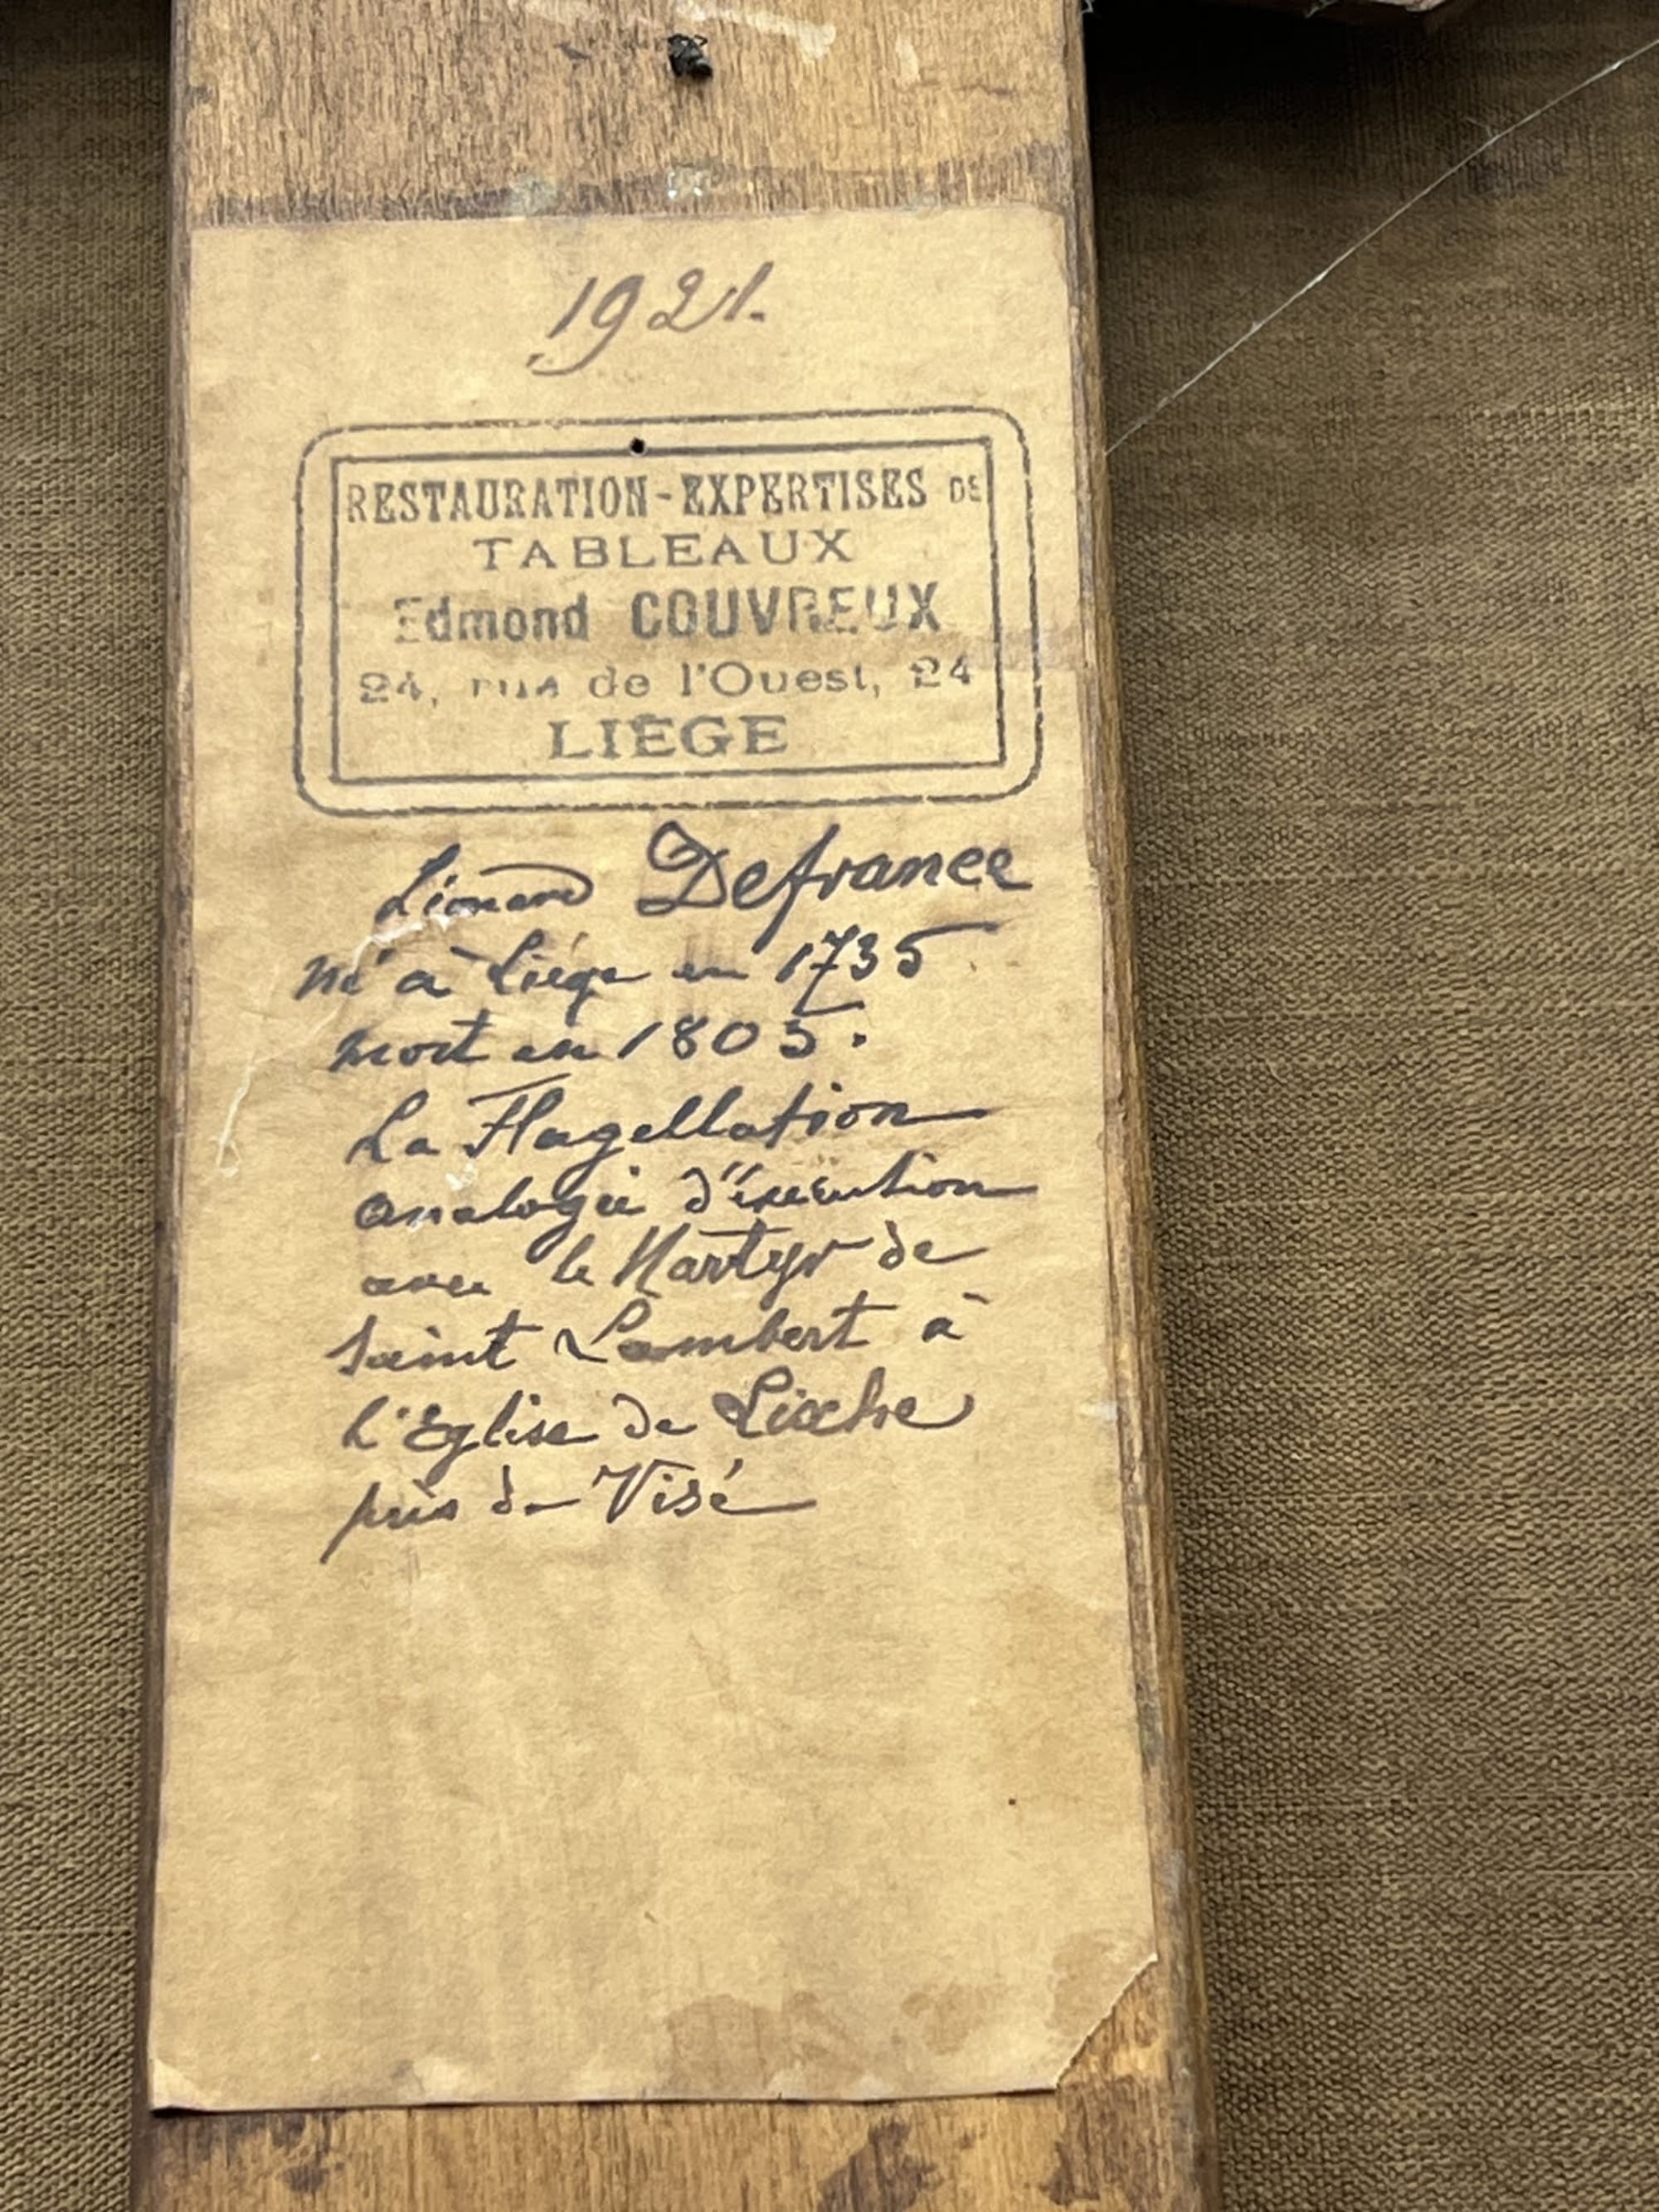 1921.
RESTAURATION-EXPERTISES DE
TABLEAUX
Edmond COUVREUX
24, rue de l'Ouest, 24
LIÈGE
Léonard Defrance
né à Liége en 1735
mort en 1805.
La Flagellation
analogie d'éxecution
avec le Martyr de
Saint Lambert à
l'Eglise de Lixhe
près de Visé